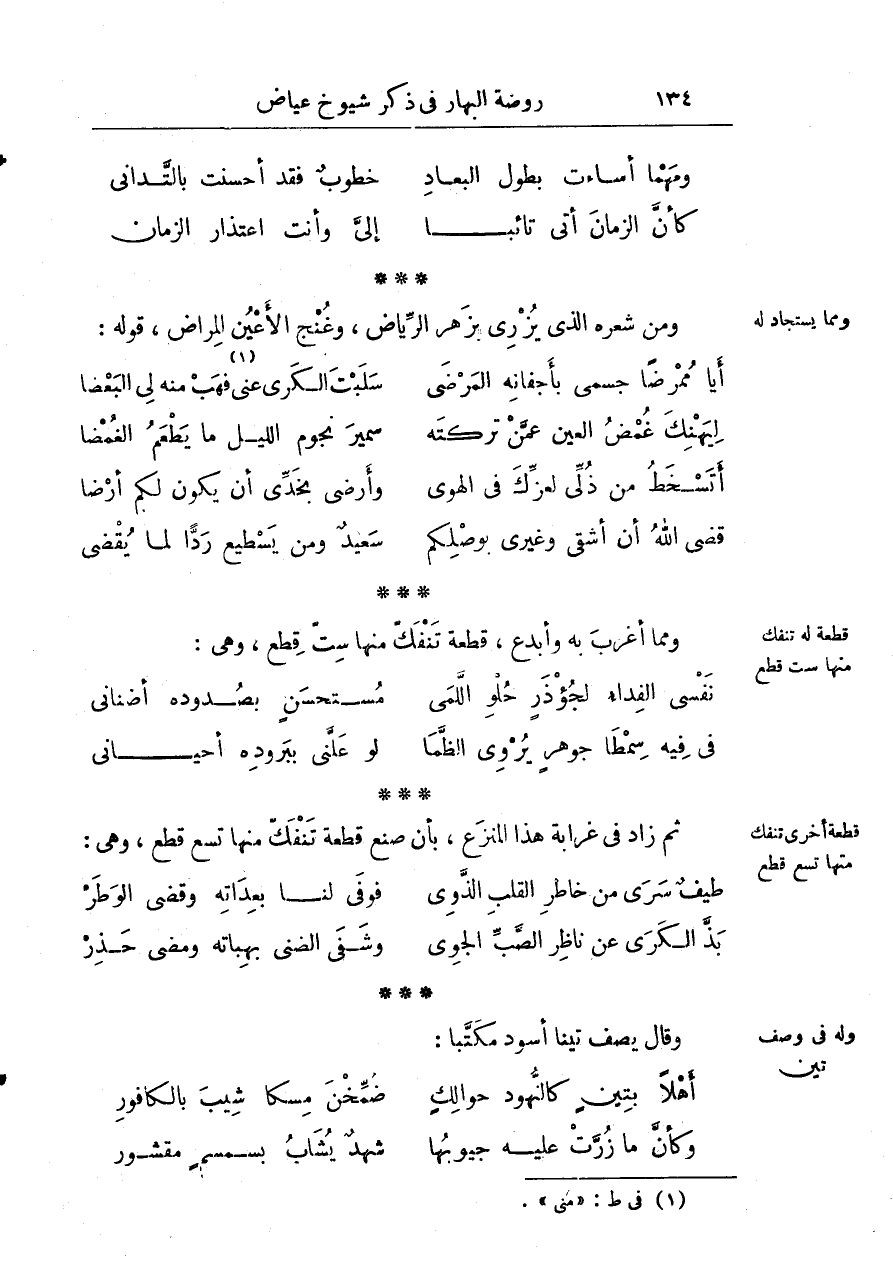 ١٣٤ روضة البهار فى ذكر شيوخ عياض
ومَهْما أساءت بطول البعادِ خطوبٌ فقد أحسنت بالتَّدانى
كأنَّ الزمانَ أتى تائبا إلىَّ وأنت اعتذار الزمان
***
ومما يستجاد له
ومن شعره الذى يُزْرِى بزَهر الرِّياض ، وغُنْج الأَعْيُنِ المِراض ، قوله :
أيا مُمْرِضًا جسمى بأَجفانِه المَرْضَى سَلَبْتَ الكَرى عنى (١) فهَبْ منه لِى البَعْضا
لِيَهْنِكَ غُمْضُ العين عمَّنْ تركتَه سميرَ نجوم الليل ما يَطْعَمُ الغُمْضا
أتَسْخَطُ من ذُلِّى لعزِّكَ فى الهوى وأَرضى بخَدِّى أن يكون لكم أرْضا
قضى اللهُ أن أشقى وغيرى بوصْلِكم سَعيدٌ ومن يَسْطيع رَدًّا لما يُقْضى
***
قطعة له تنفك
منها ست قطع
ومما أغربَ به وأبدع ، قطعة تَنْفَكّ منها سِتّ قِطع ، وهى :
نَفْسى الفِداء لجُؤْذَرٍ حُلْوِ اللَّمَى مُستحسَنٍ بصُدوده أضنانى
فى فِيه سِمْطَا جوهرٍ يُرْوِى الظَّمَا لو عَلَّنى ببَروده أحيانى
***
قطعة أخرى تنفك
منها تسع قطع
ثم زاد فى غرابة هذا المنزَع ، بأن صنع قطعة تَنْفَكّ منها تسع قطع ، وهى :
طيفٌ سَرَى من خاطرِ القلبِ الذَّوِى فوفَى لنا بعِدَاتِه وقضى الوَطَرْ
بَذَّ الكَرَى عن ناظِر الصَّبِّ الجَوِى وشَفَى الضنى بهِباته ومضى حَذِرْ
***
وله فى وصف
تين
وقال يصف تينا أسود مكَتَّبا :
أَهْلاً بِتِينٍ كالنُّهود حوالِكٍ ضُمِّخْنَ مِسكا شِيبَ بالكافورِ
وكأنَّ ما زُرَّتْ عليه جيوبُها شهدٌ يُشَابُ بسمسمٍ مقشور
(١) فى ط : «منى» .